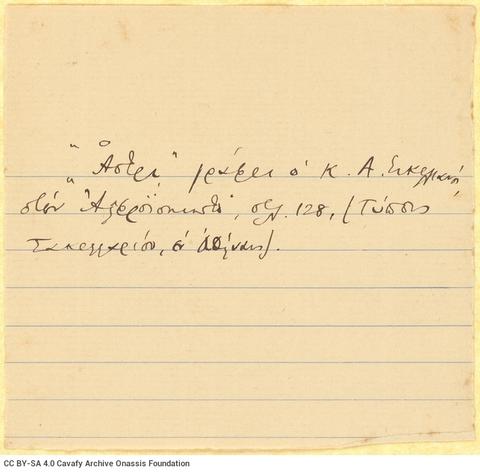 "Ἄστρι" γράφει ὁ κ. Α. Σικελιανός,
στὸν "Ἀλαφροΐσκιωτο", σελ. 128, (Τύποις
Σακελλαρίου, ἐν Ἀθήναις).
CC BY-SA 4.0 Cavafy Archive Onassis Foundation